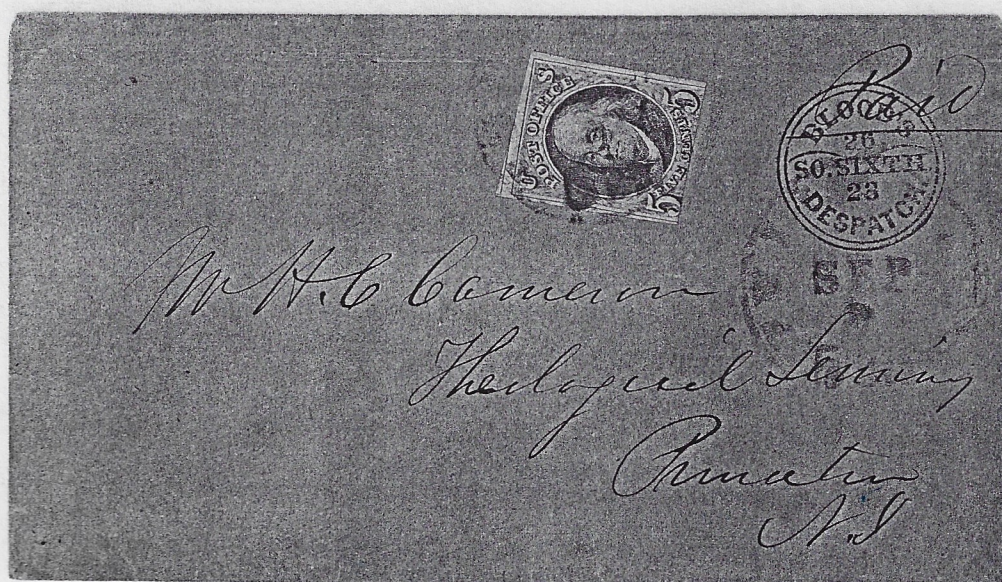 Paid
POST OFFICE
FIVE CENTS
5 5
BLOOD'S
28
SO. SIXTH
DESPATCH
SEP
Mr H. C Cameron
Theological Seminary
Princeton
N. J